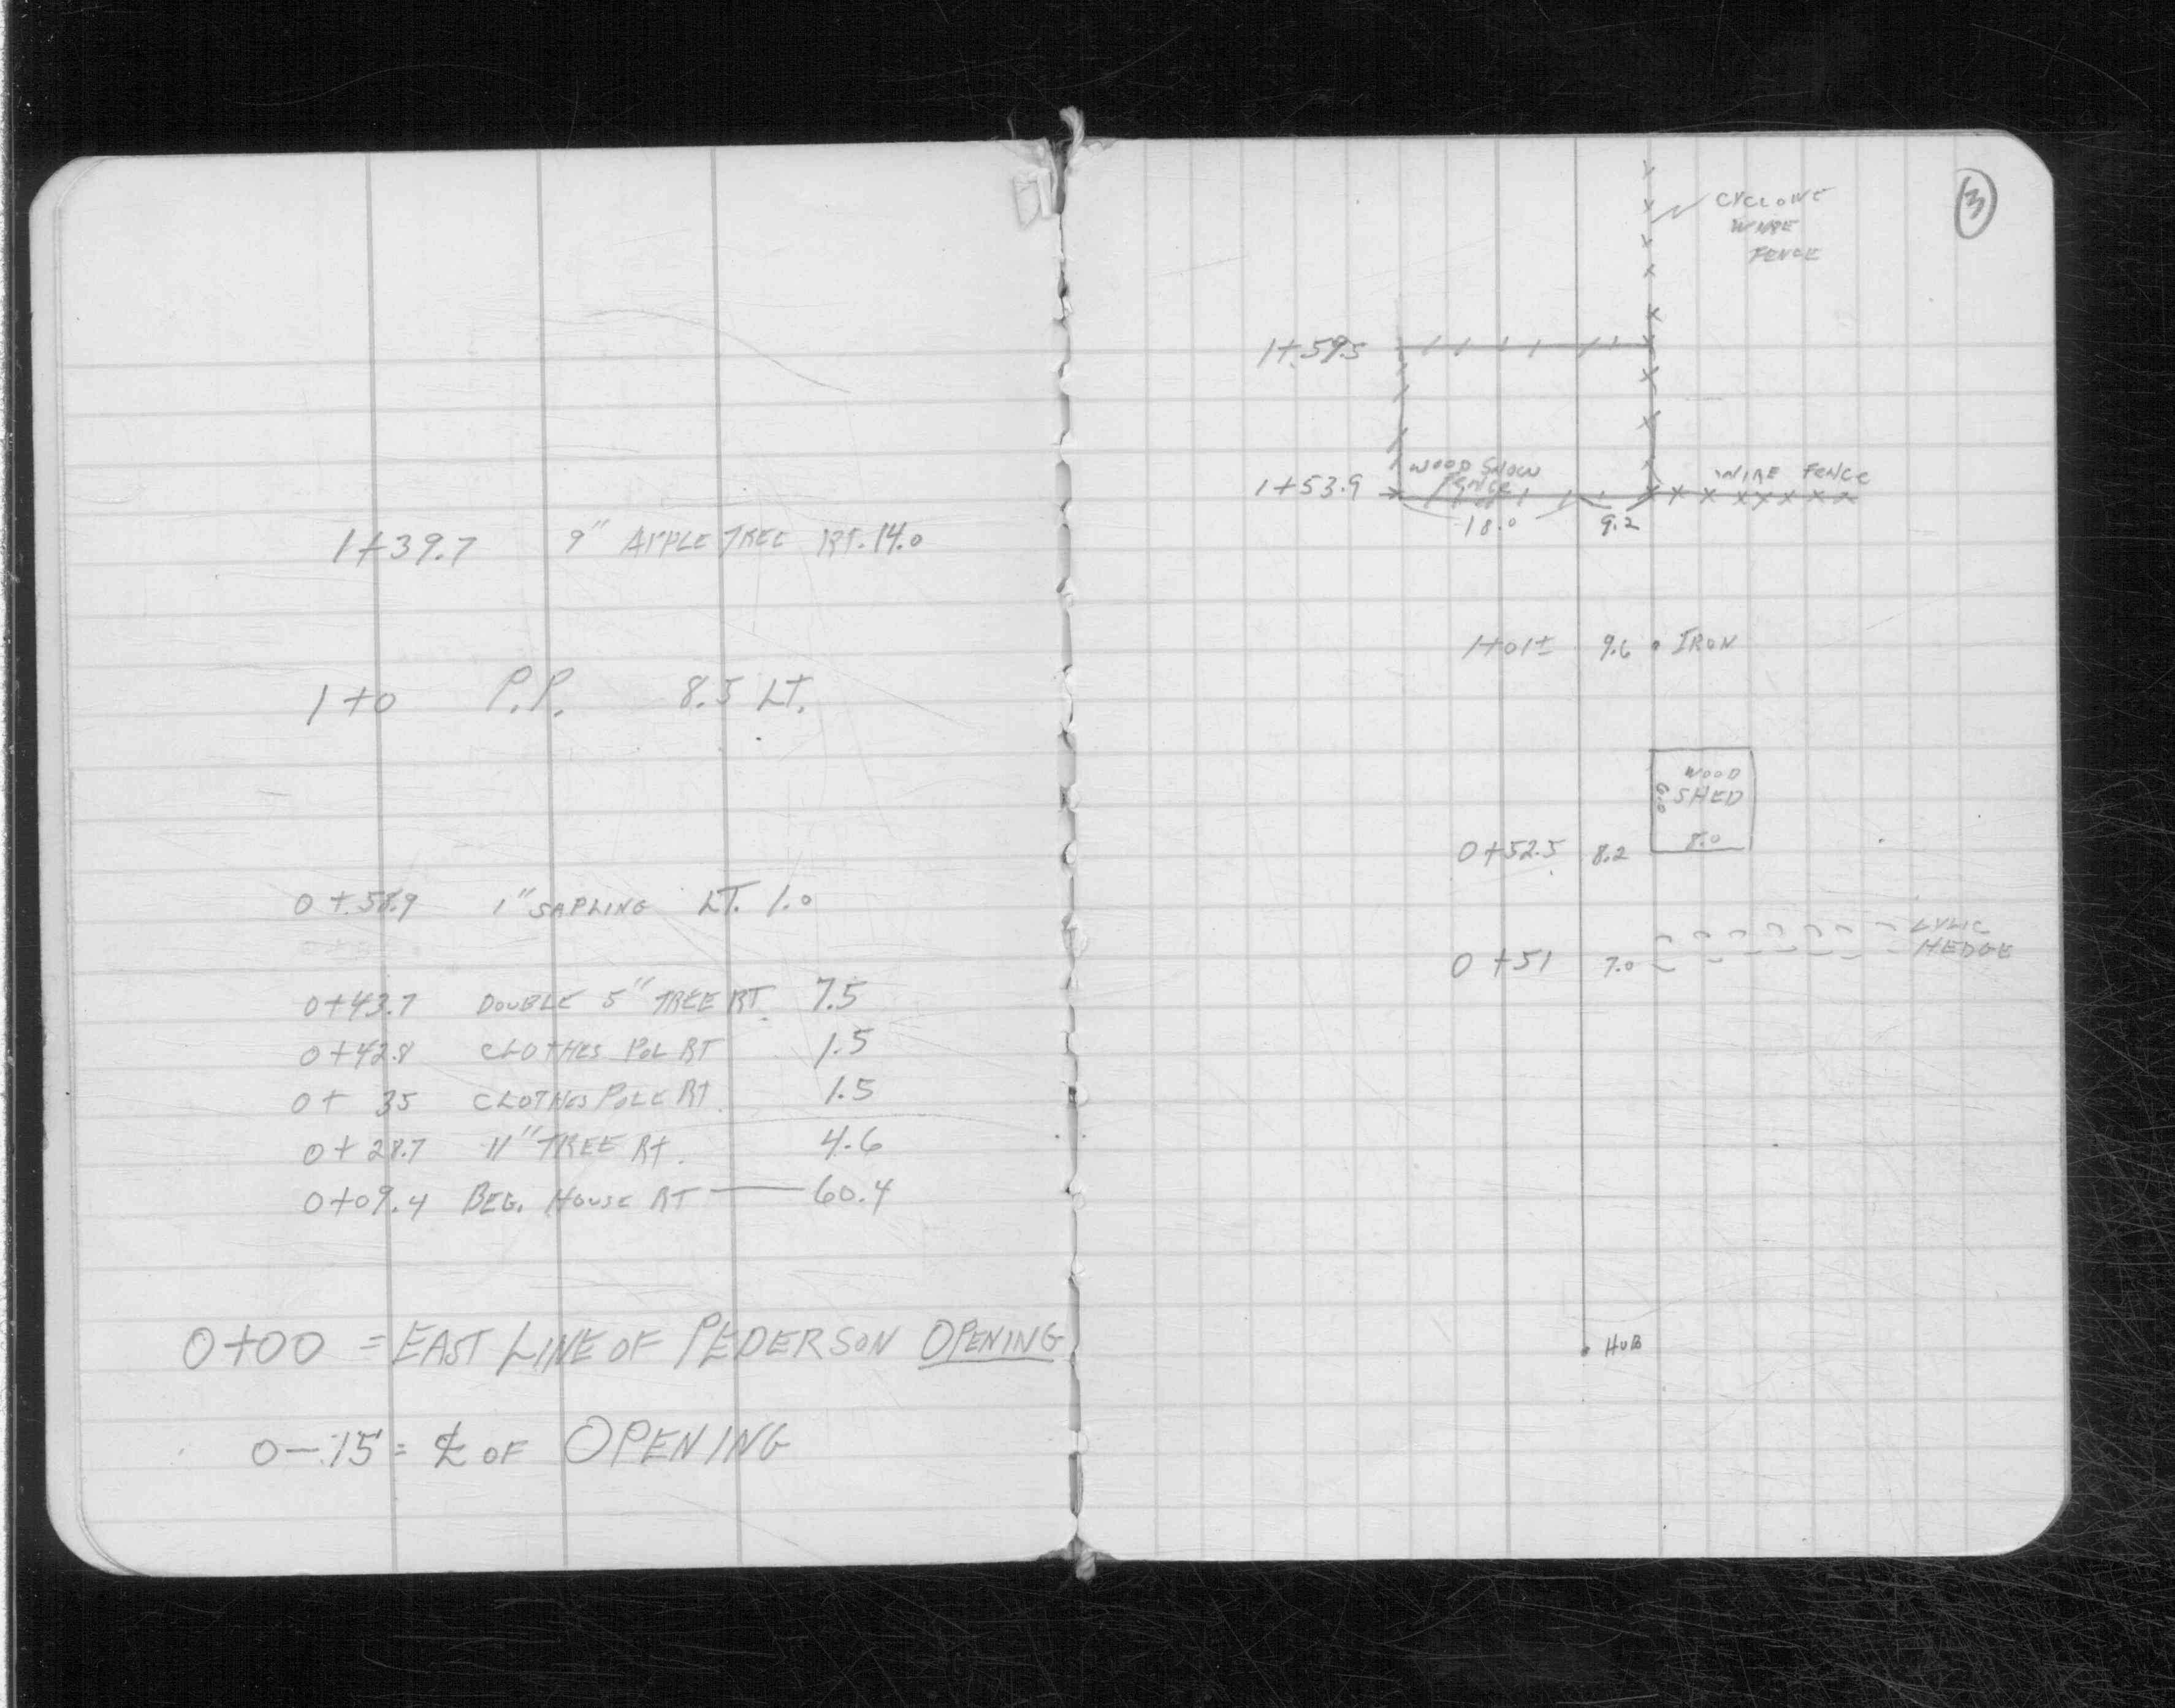 1+39.7 9" APPLE TREE RT. 14.0
1+0 P.P. 8.5 LT.
0+58.9 1" SAPLING LT. 1.0
0+43.7 DOUBLE 5" TREE RT. 7.5
0+42.8 CLOTHES POL RT 1.5
0+ 35 CLOTHES POLE RT. 1.5
0+28.7 11" TREE RT. 4.6
0+09.4 BEG. HOUSE RT — 60.4
0+00 = EAST LINE OF PEDERSON OPENING
0-15 = ℄ OF OPENING
3
CYCLONE
WIRE
FENCE
1+59.5
1+53.9 WOOD SNOW WIRE FENCE
FENCE
18.0 9.2
1+01± 9.6 IRON
WOOD
6.0 SHED
8.0
0+52.5 8.2
LYLIC
HEDGE
0+51 7.0
HUB